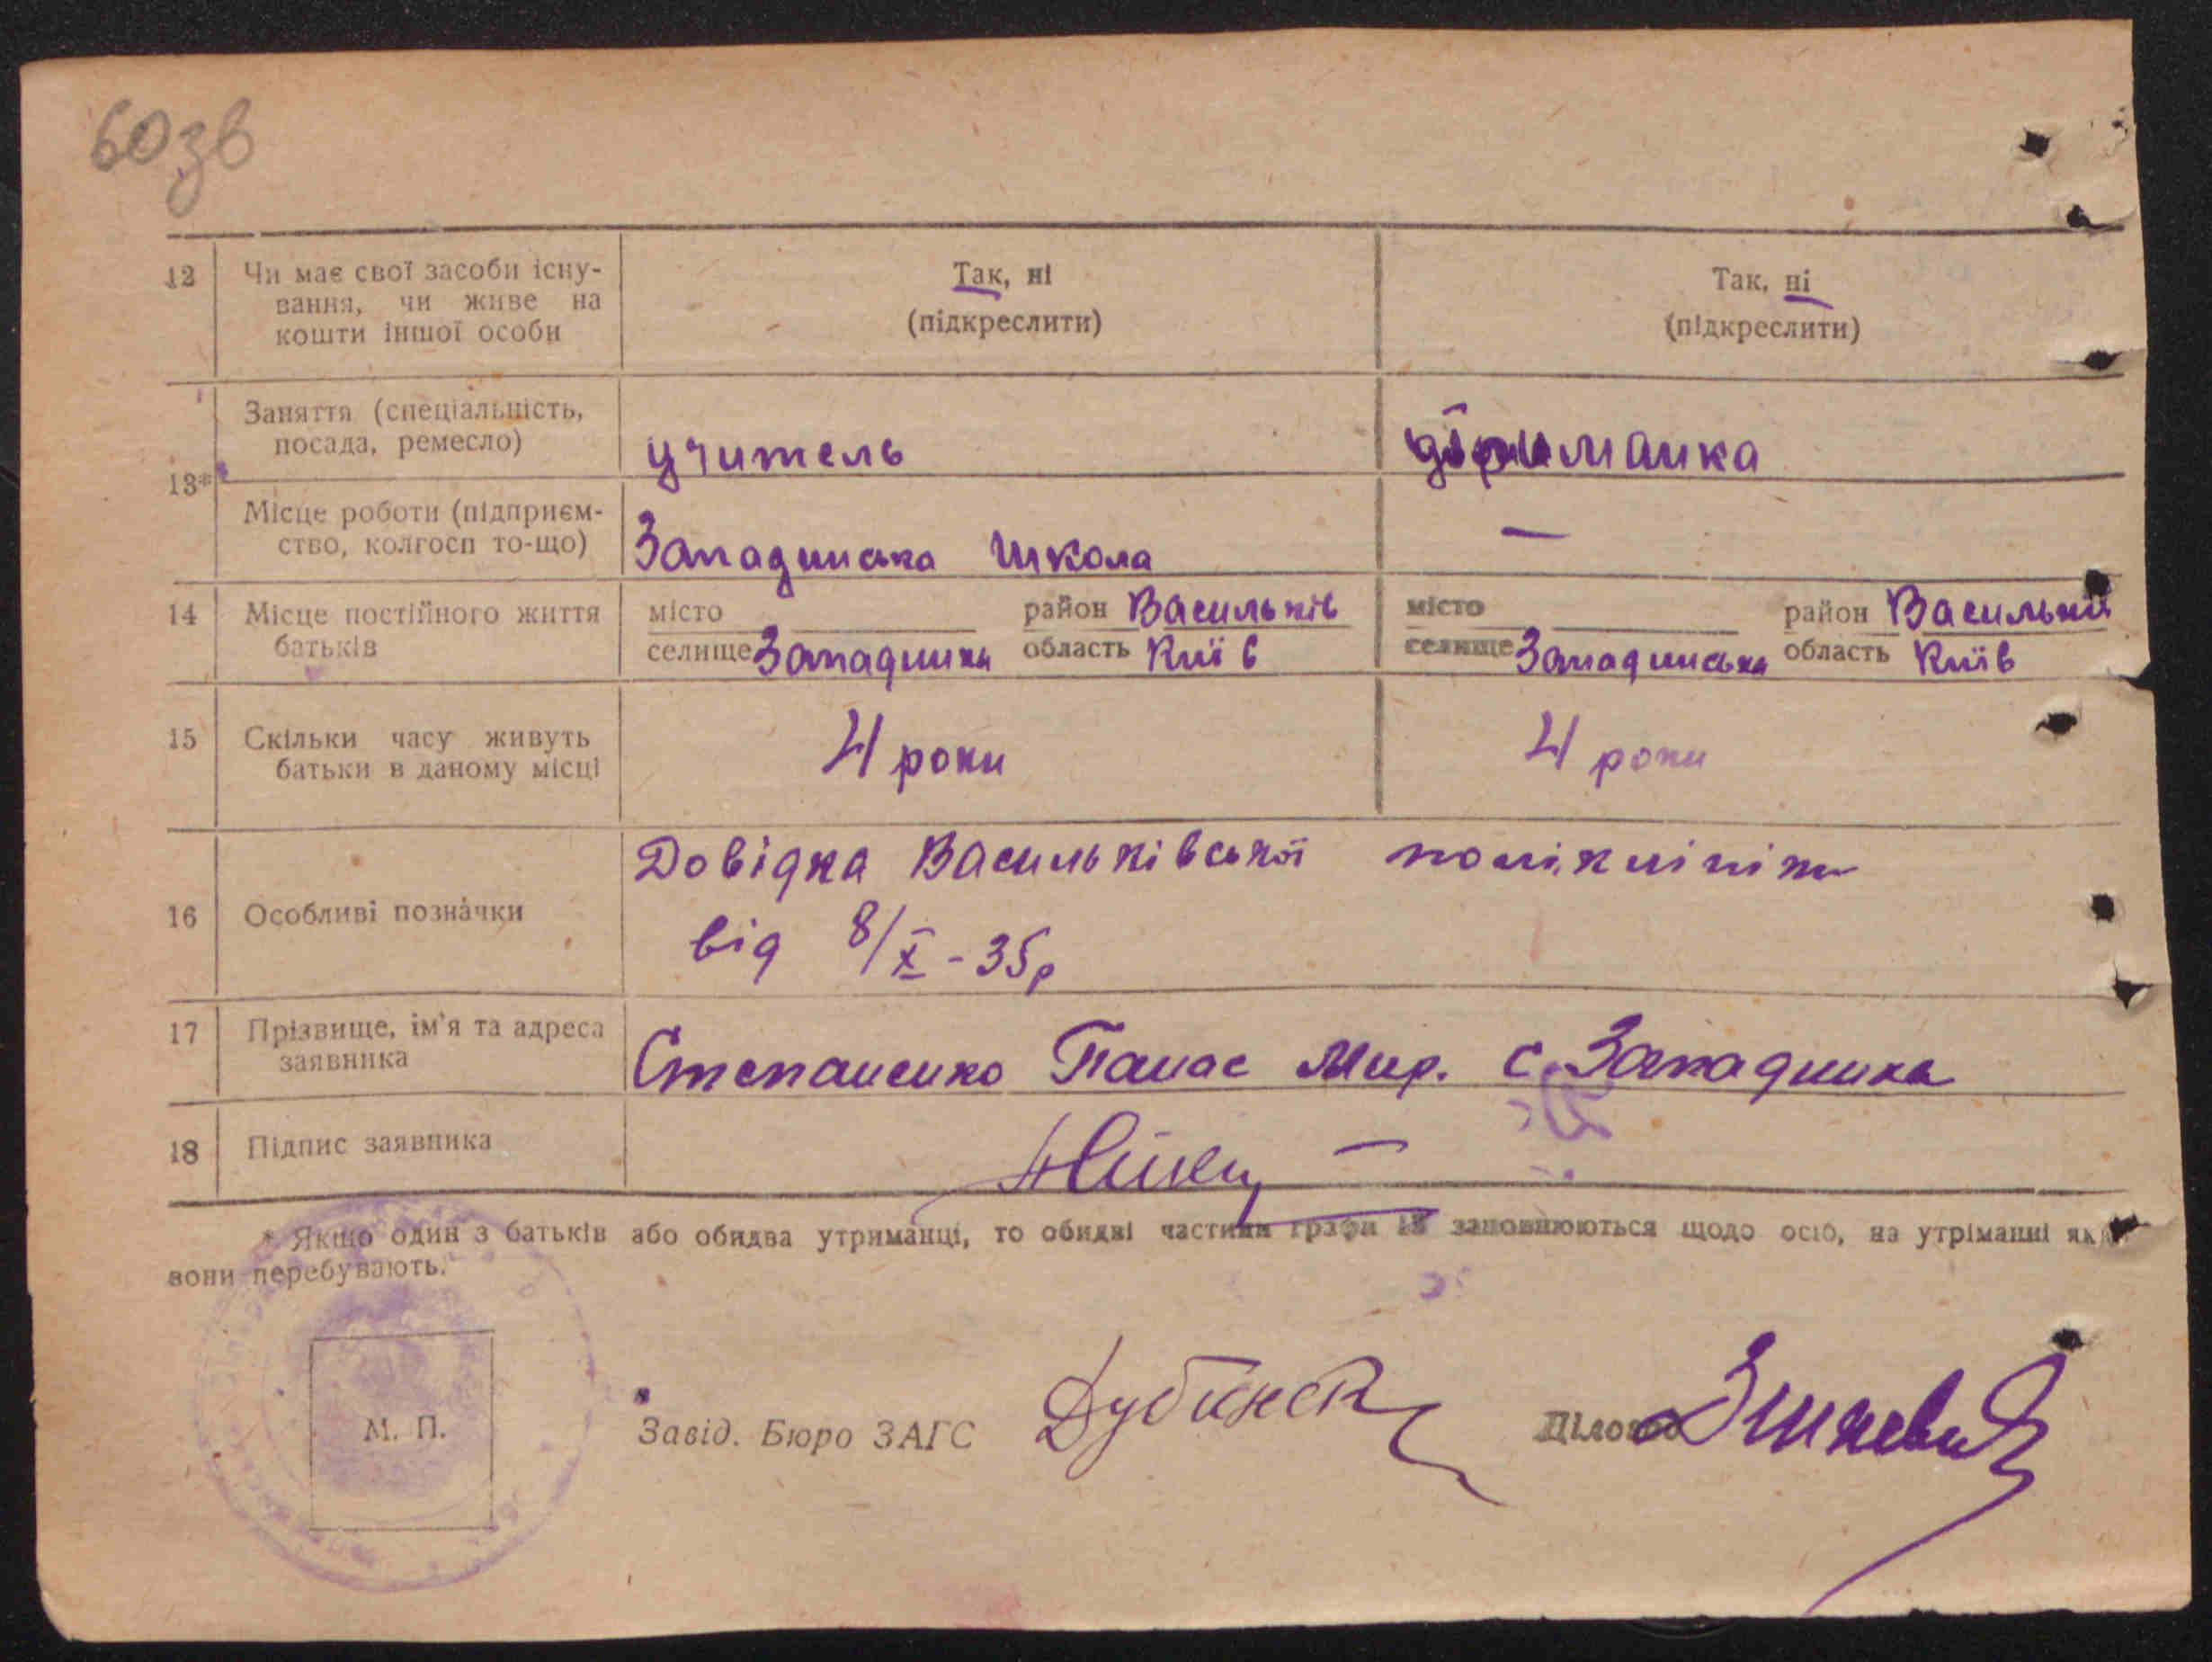 60зв
12 Чи має свої засоби існу-
вання, чи живе на
кошти іншої особи
Так, ні
(підкреслити)
Так, ні
(підкреслити)
13*
Заняття (спеціальність,
посада, ремесло)
учитель
Місце роботи (підприєм-
ство, колгосп то-що)
Западинська школа
—
14 Місце постійного життя
батьків
місто район Васильків
селище Западинка область Київ
місто район Васильків
селище Западинська область Київ
15 Скільки часу живуть
батьки в даному місці
4 роки
4 роки
16 Особливі позначки
Довідка Васильківської поліклініки
від 8/X - 35р
17 Прізвище, ім'я та адреса
заявника
Степаненко Панас Мир. с. Западинка
18 Підпис заявника
* Якщо один з батьків або обидва утриманці, то обидві частини графи 13 заповнюються щодо осіб, на утріманні яких
вони перебувають.
М. П.
Завід. Бюро ЗАГС
Діловод